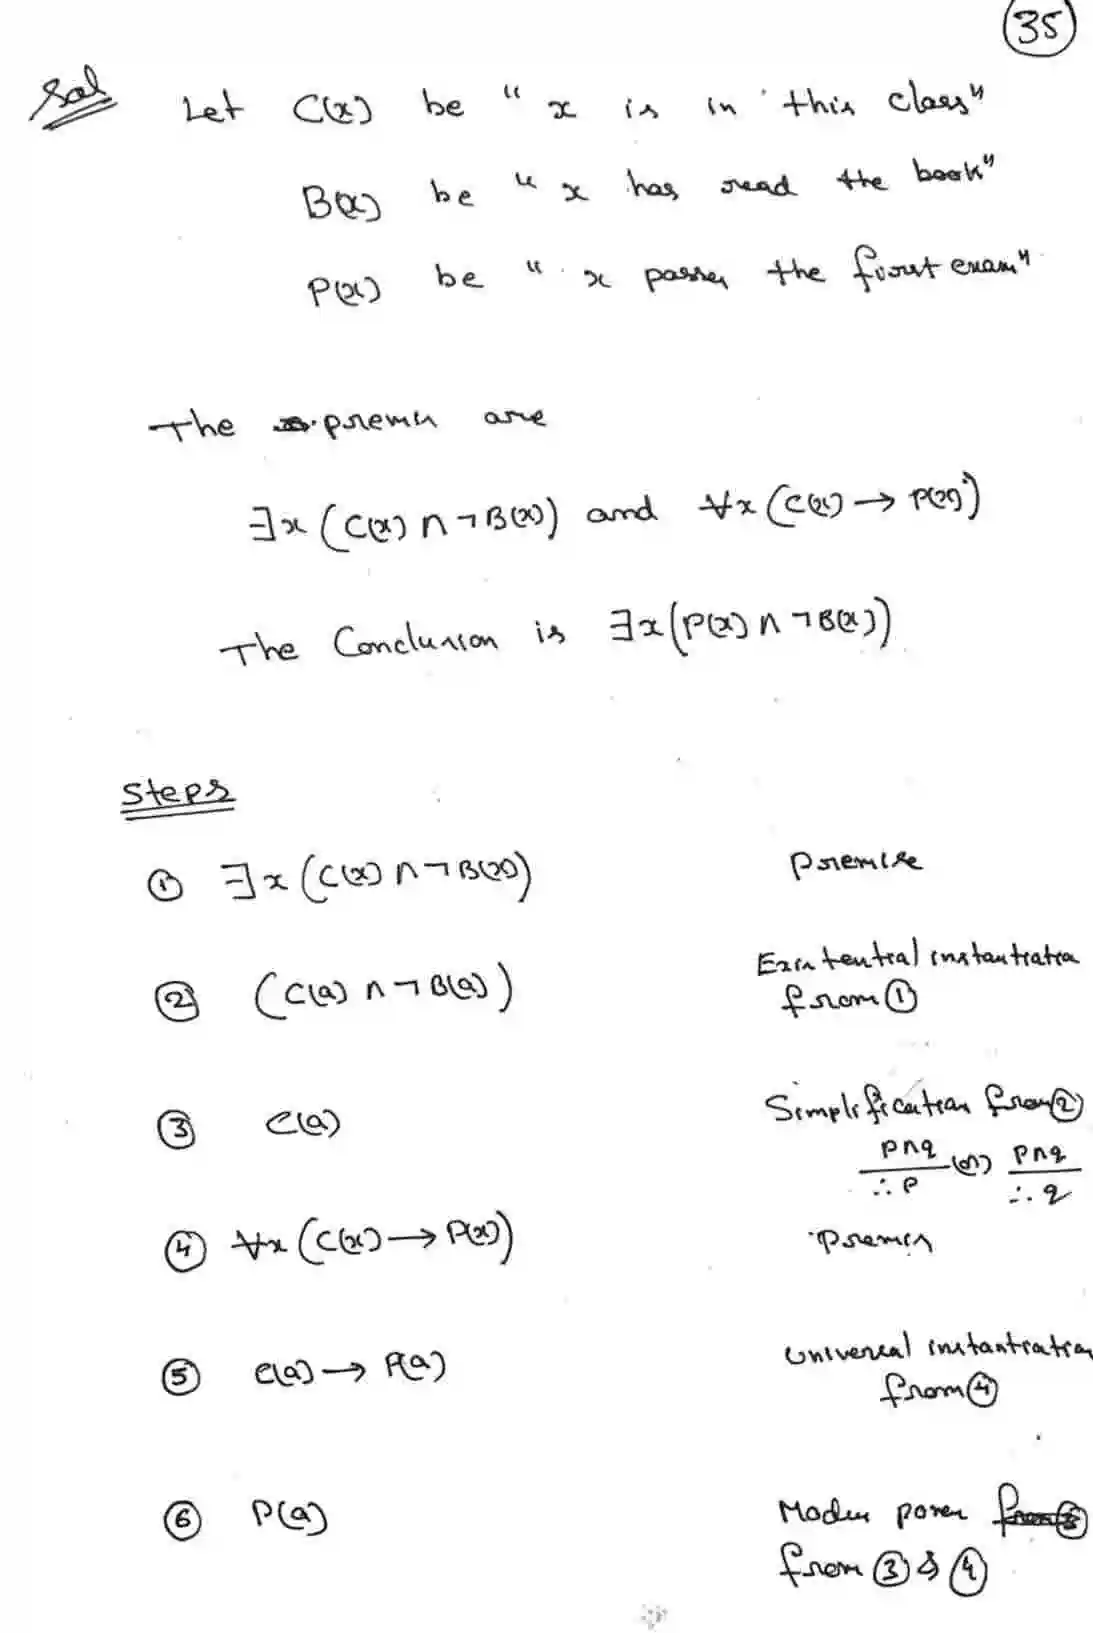 35
Sol Let C(x) be "x is in this class"
B(x) be "x has read the book"
P(x) be "x passes the first exam"
The premis are
∃x (C(x) ∩ ¬B(x)) and ∀x (C(x) → P(x))
The Conclusion is ∃x (P(x) ∩ ¬B(x))
Steps
① ∃x (C(x) ∩ ¬B(x)) Premise
② (C(a) ∩ ¬B(a)) Existential instantiation
from ①
③ C(a) Simplification from ②
p∩q / ∴ p (or) p∩q / ∴ q
④ ∀x (C(x) → P(x)) Premis
⑤ C(a) → P(a) Universal instantiation
from ④
⑥ P(a) Modus ponen
from ③ & ④